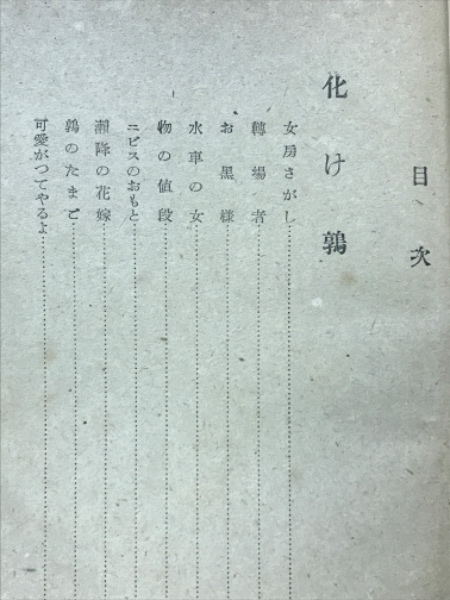 目次
化け鶉
女房さがし
轉場者
お黒樣
水車の女
物の値段
ニビスのおもと
瀬降の花嫁
鶉のたまご
可愛がつてやるよ